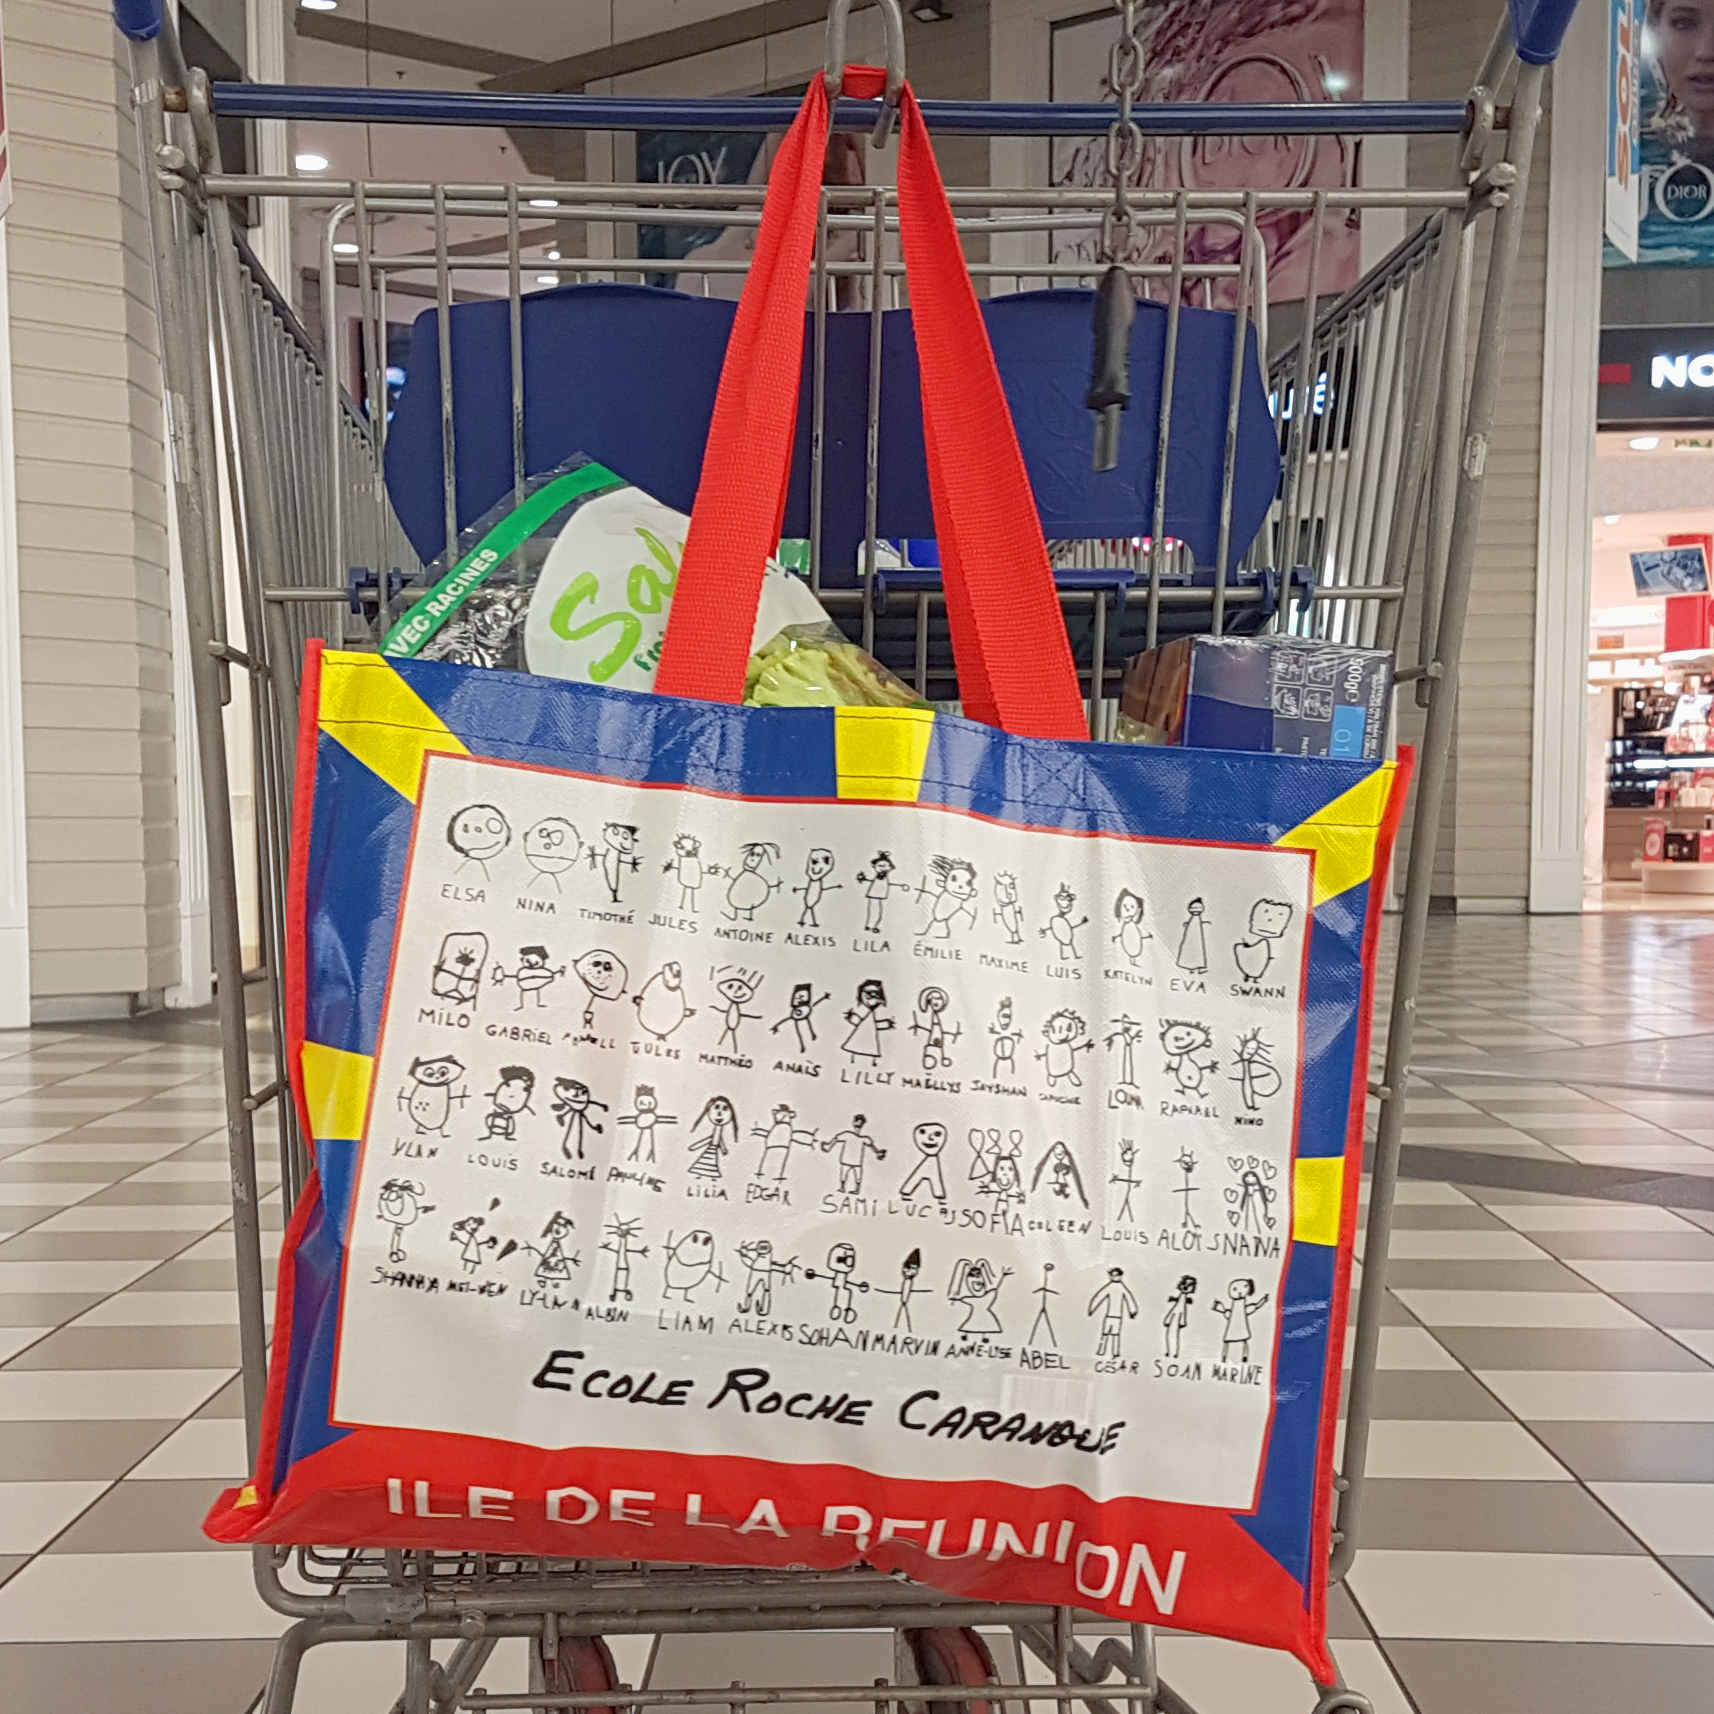 JOY
DIOR
DIOR
NO
VEC RACINES
Sal
500g
01
ELSA NINA TIMOTHÉ JULES ANTOINE ALEXIS LILA ÉMILIE MAXIME LUIS KATELYN EVA SWANN
MILO GABRIEL JULES MATTHÉO ANAÏS LILLY MAËLLYS JAYSHAN LOUNA RAPHAEL NINO
YLAN LOUIS SALOMÉ PAULINE LILIA EDGAR SAMI LUCAS SOFIA COLEEN LOUIS ALOÏS NAÏNA
SHANNYA MEI-WEN LY-LAN ALBIN LIAM ALEXIS SOHAN MARVIN ANNE-LISE ABEL CÉSAR SOAN MARINE
ECOLE ROCHE CARANGUE
ILE DE LA REUNION